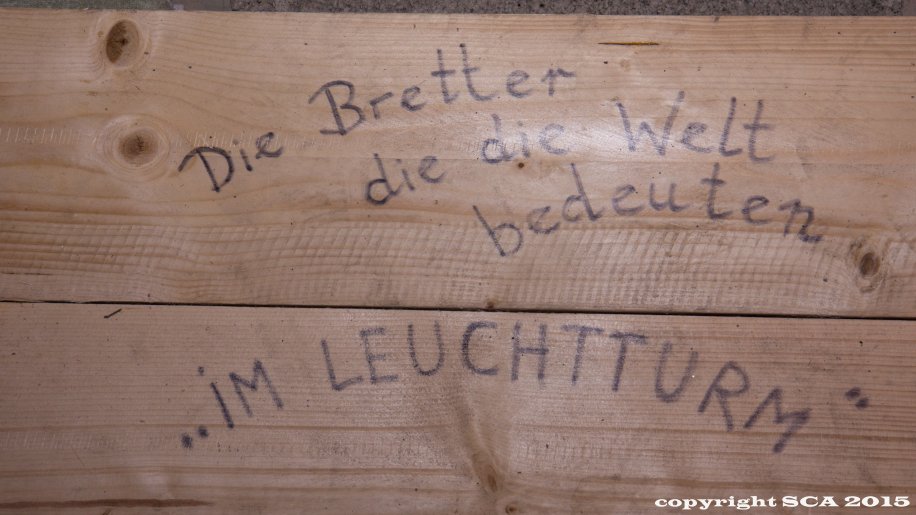 Die Bretter
die die Welt
bedeuten
„iM LEUCHTTURM“
copyright SCA 2015